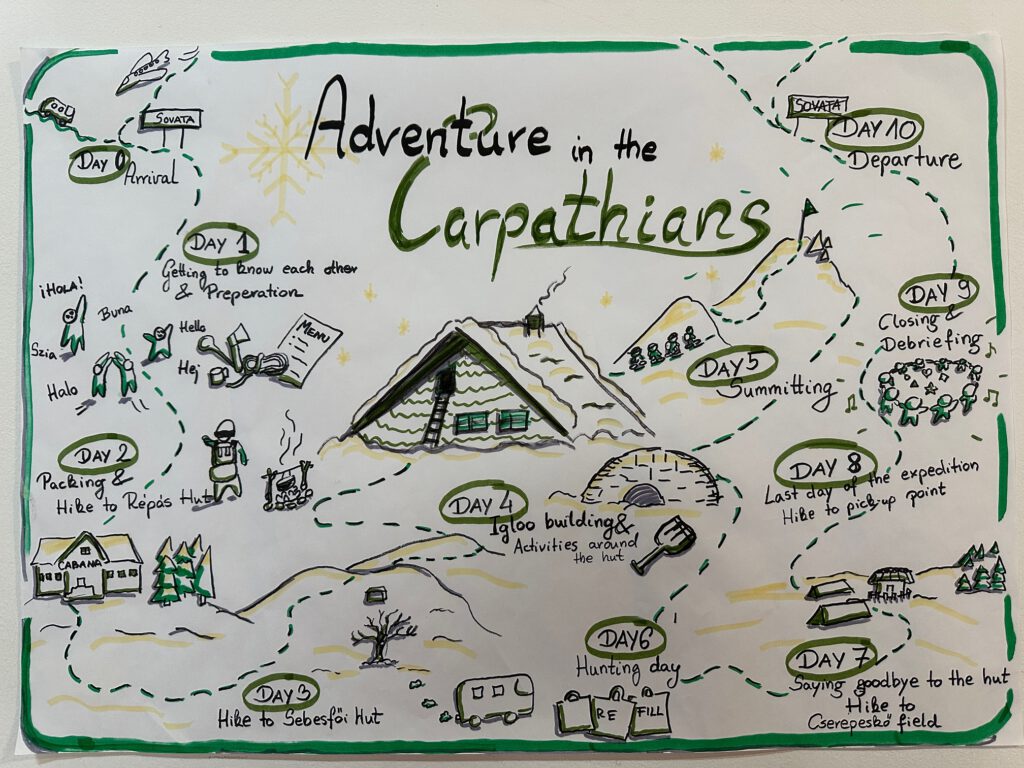 Adventure in the
Carpathians
SOVATA
DAY 0
Arrival
DAY 1
Getting to know each other
& Preperation
¡HOLA!
Buna
Szia
Hello
Halo
Hej
MENU
DAY 2
Packing &
Hike to Répás Hut
CABANA
DAY 3
Hike to Sebesfői Hut
DAY 4
Igloo building &
Activities around
the hut
DAY 5
Summitting
DAY 6
Hunting day
RE FILL
DAY 7
Saying goodbye to the hut
Hike to
Cserepeskő field
DAY 8
Last day of the expedition
Hike to pick-up point
DAY 9
Closing &
Debriefing
SOVATA
DAY 10
Departure